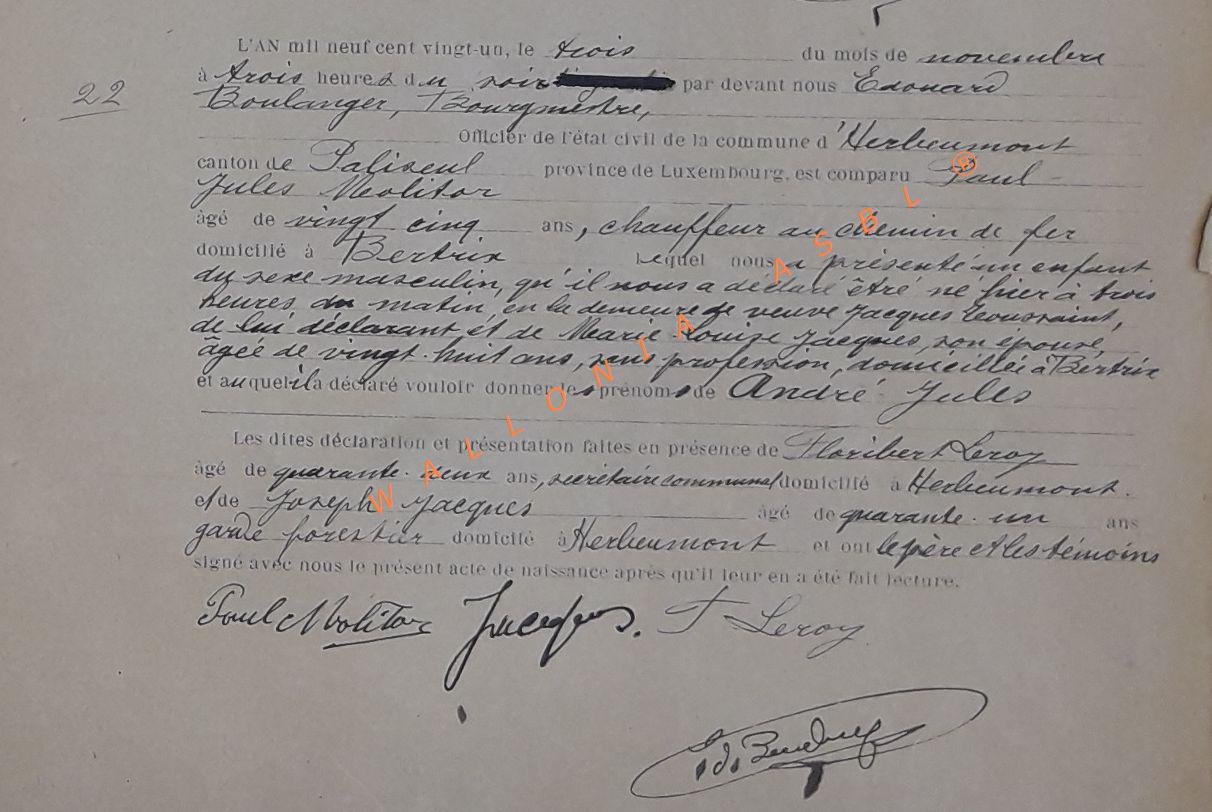 L'AN mil neuf cent vingt-un, le trois du mois de novembre
22
à trois heures du soir par devant nous Edouard
Boulanger, Bourgmestre,
Officier de l'état civil de la commune d'Herbeumont
canton de Paliseul province de Luxembourg, est comparu Paul
Jules Molitor
âgé de vingt cinq ans, chauffeur au chemin de fer
domicilié à Bertrix Lequel nous a présenté un enfant
du sexe masculin, qu'il nous a déclaré être né hier à trois
heures du matin, en la demeure de veuve Jacques Toussaint,
de lui déclarant et de Marie Louise Jacques, son épouse,
âgée de vingt-huit ans, sans profession, domiciliée à Bertrix
et auquel il a déclaré vouloir donner les prénoms de André Jules
Les dites déclaration et présentation faites en présence de Floribert Leroy
âgé de quarante-deux ans, secrétaire communal domicilié à Herbeumont.
et de Joseph Jacques âgé de quarante-un ans
garde forestier domicilié à Herbeumont et ont le père et les témoins
signé avec nous le présent acte de naissance après qu'il leur en a été fait lecture.
Paul Molitor Jacques. F Leroy
WALLONIA ASBL ®